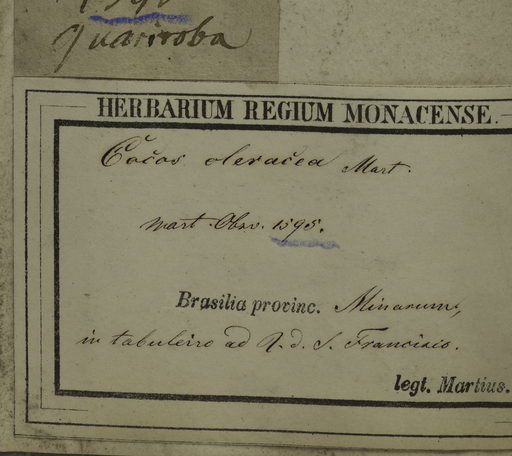 Guariroba
HERBARIUM REGIUM MONACENSE.
Cočos oleračea Mart.
Mart. Obsv. 1595.
Brasilia provinc. Minarum,
in tabuleiro ad R. d. S. Francisco.
legt. Martius.